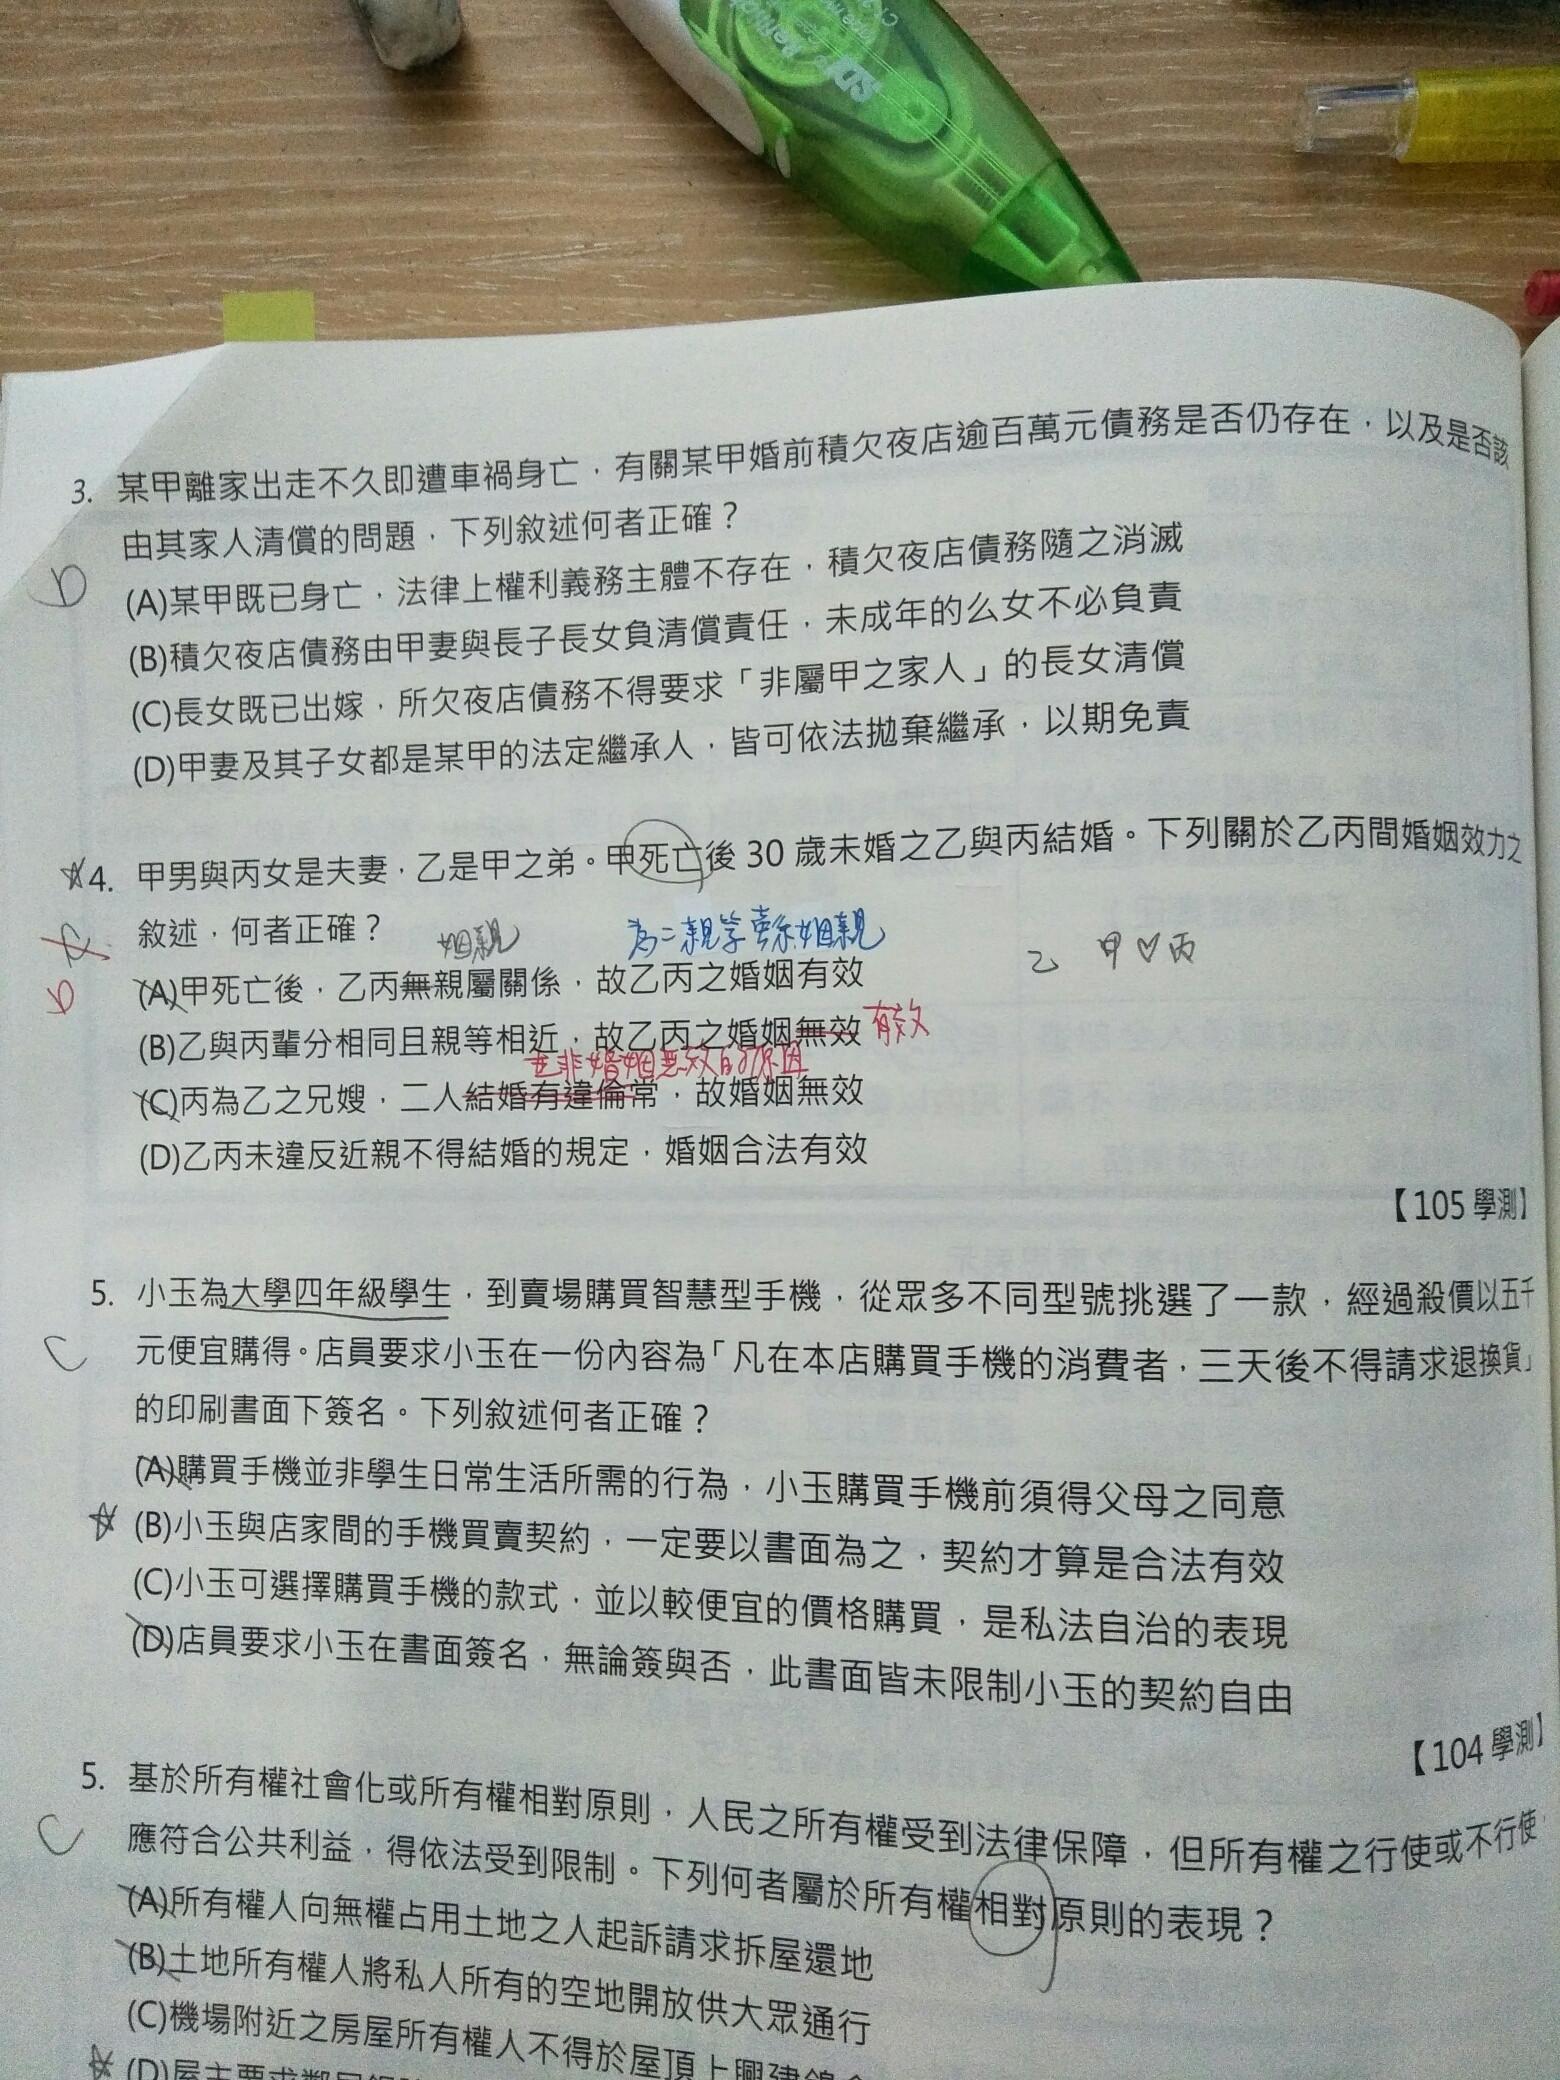 SDI
3. 某甲離家出走不久即遭車禍身亡，有關某甲婚前積欠夜店逾百萬元債務是否仍存在，以及是否該
由其家人清償的問題，下列敘述何者正確？
D
(A)某甲既已身亡，法律上權利義務主體不存在，積欠夜店債務隨之消滅
(B)積欠夜店債務由甲妻與長子長女負清償責任，未成年的么女不必負責
(C)長女既已出嫁，所欠夜店債務不得要求「非屬甲之家人」的長女清償
(D)甲妻及其子女都是某甲的法定繼承人，皆可依法拋棄繼承，以期免責
☆4. 甲男與丙女是夫妻，乙是甲之弟。甲死亡後 30 歲未婚之乙與丙結婚。下列關於乙丙間婚姻效力之
敘述，何者正確？
姻親 為二親等旁系姻親
乙 甲♡丙
D
(A)甲死亡後，乙丙無親屬關係，故乙丙之婚姻有效
(B)乙與丙輩分相同且親等相近，故乙丙之婚姻無效 有效
並非婚姻無效的原因
(C)丙為乙之兄嫂，二人結婚有違倫常，故婚姻無效
(D)乙丙未違反近親不得結婚的規定，婚姻合法有效
【105 學測】
5. 小玉為大學四年級學生，到賣場購買智慧型手機，從眾多不同型號挑選了一款，經過殺價以五千
C
元便宜購得。店員要求小玉在一份內容為「凡在本店購買手機的消費者，三天後不得請求退換貨」
的印刷書面下簽名。下列敘述何者正確？
(A)購買手機並非學生日常生活所需的行為，小玉購買手機前須得父母之同意
☆ (B)小玉與店家間的手機買賣契約，一定要以書面為之，契約才算是合法有效
(C)小玉可選擇購買手機的款式，並以較便宜的價格購買，是私法自治的表現
(D)店員要求小玉在書面簽名，無論簽與否，此書面皆未限制小玉的契約自由
【104 學測】
5. 基於所有權社會化或所有權相對原則，人民之所有權受到法律保障，但所有權之行使或不行使，
C
應符合公共利益，得依法受到限制。下列何者屬於所有權相對原則的表現？
(A)所有權人向無權占用土地之人起訴請求拆屋還地
(B)土地所有權人將私人所有的空地開放供大眾通行
(C)機場附近之房屋所有權人不得於屋頂上興建鴿舍
☆ (D)屋主要求鄰居